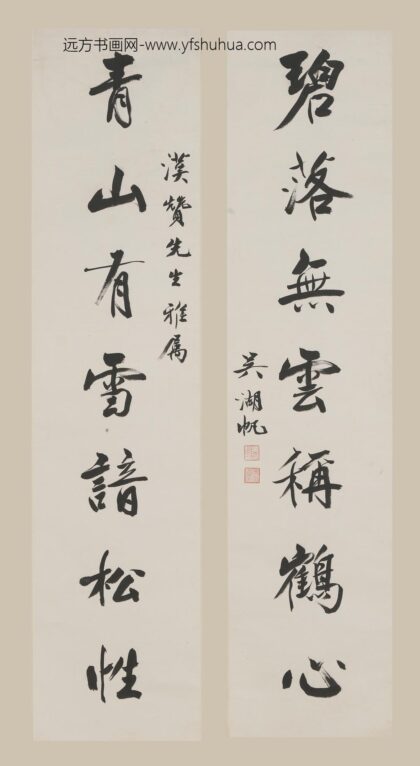 远方书画网-www.yfshuhua.com
碧落無雲稱鶴心
吳湖帆
漢贊先生雅属
青山有雪諳松性